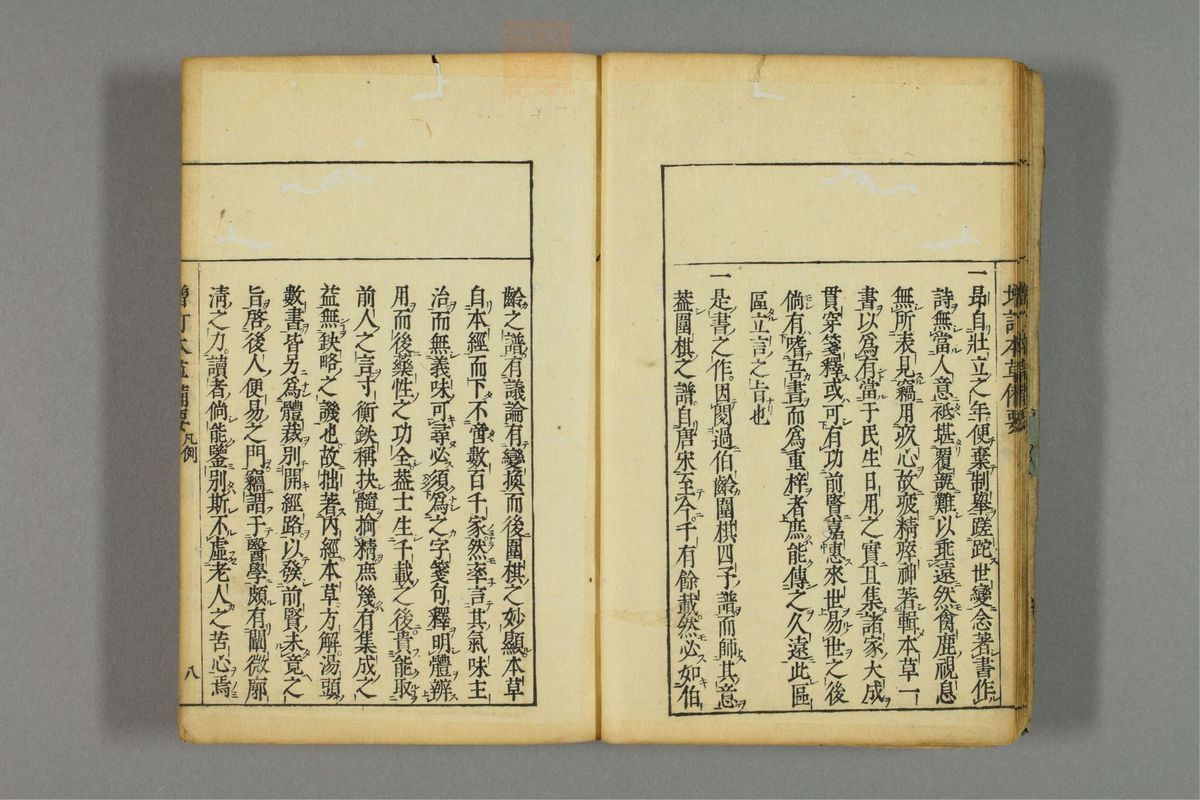 增訂本草備要
一昻自壯立之年便棄制舉蹉跎世變念著書作
詩無當人意祗堪覆瓿難以乖遠然禽鹿視息
無所表見竊用疚心故疲精瘁神著輯本草一
書以爲有當于民生日用之實且集諸家大成
貫穿箋釋或可有功前賢嘉惠來世易世之後
倘有嗜吾書而爲重梓者庶能傳之久遠此區
區立言之旨也
一是書之作因閱過伯齡圍棋四予譜而師其意
葢圍棋之譜自唐宋至今千有餘載然必如伯
齡之譜有議論有變換而後圍棋之妙顯本草
自本經而下不啻數百千家然率言其氣味主
治而無義味可尋必須爲之字箋句釋明體辨
用而後藥性之功全葢士生千載之後貴能取
前人之言寸衡銖稱抉髓摘精庶幾有集成之
益無缺略之譏也故拙著內經本草方解湯頭
數書皆另爲體裁別開經路以發前賢未竟之
旨啓後人便易之門竊謂于醫學頗有闡微廓
淸之力讀者倘能鑒別斯不虛老人之苦心焉
增訂本草備要 凡例 八